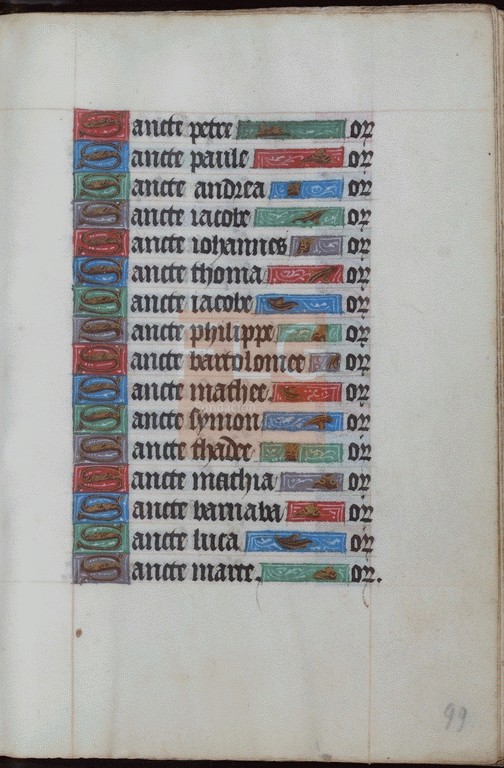 Sancte petre or
Sancte paule or
Sancte andrea or
Sancte iacobe or
Sancte iohannes or
Sancte thoma or
Sancte iacobe or
Sancte philippe or
Sancte bartolomee or
Sancte mathee or
Sancte symon or
Sancte thadee or
Sancte mathia or
Sancte barnaba or
Sancte luca or
Sancte marce or.
99